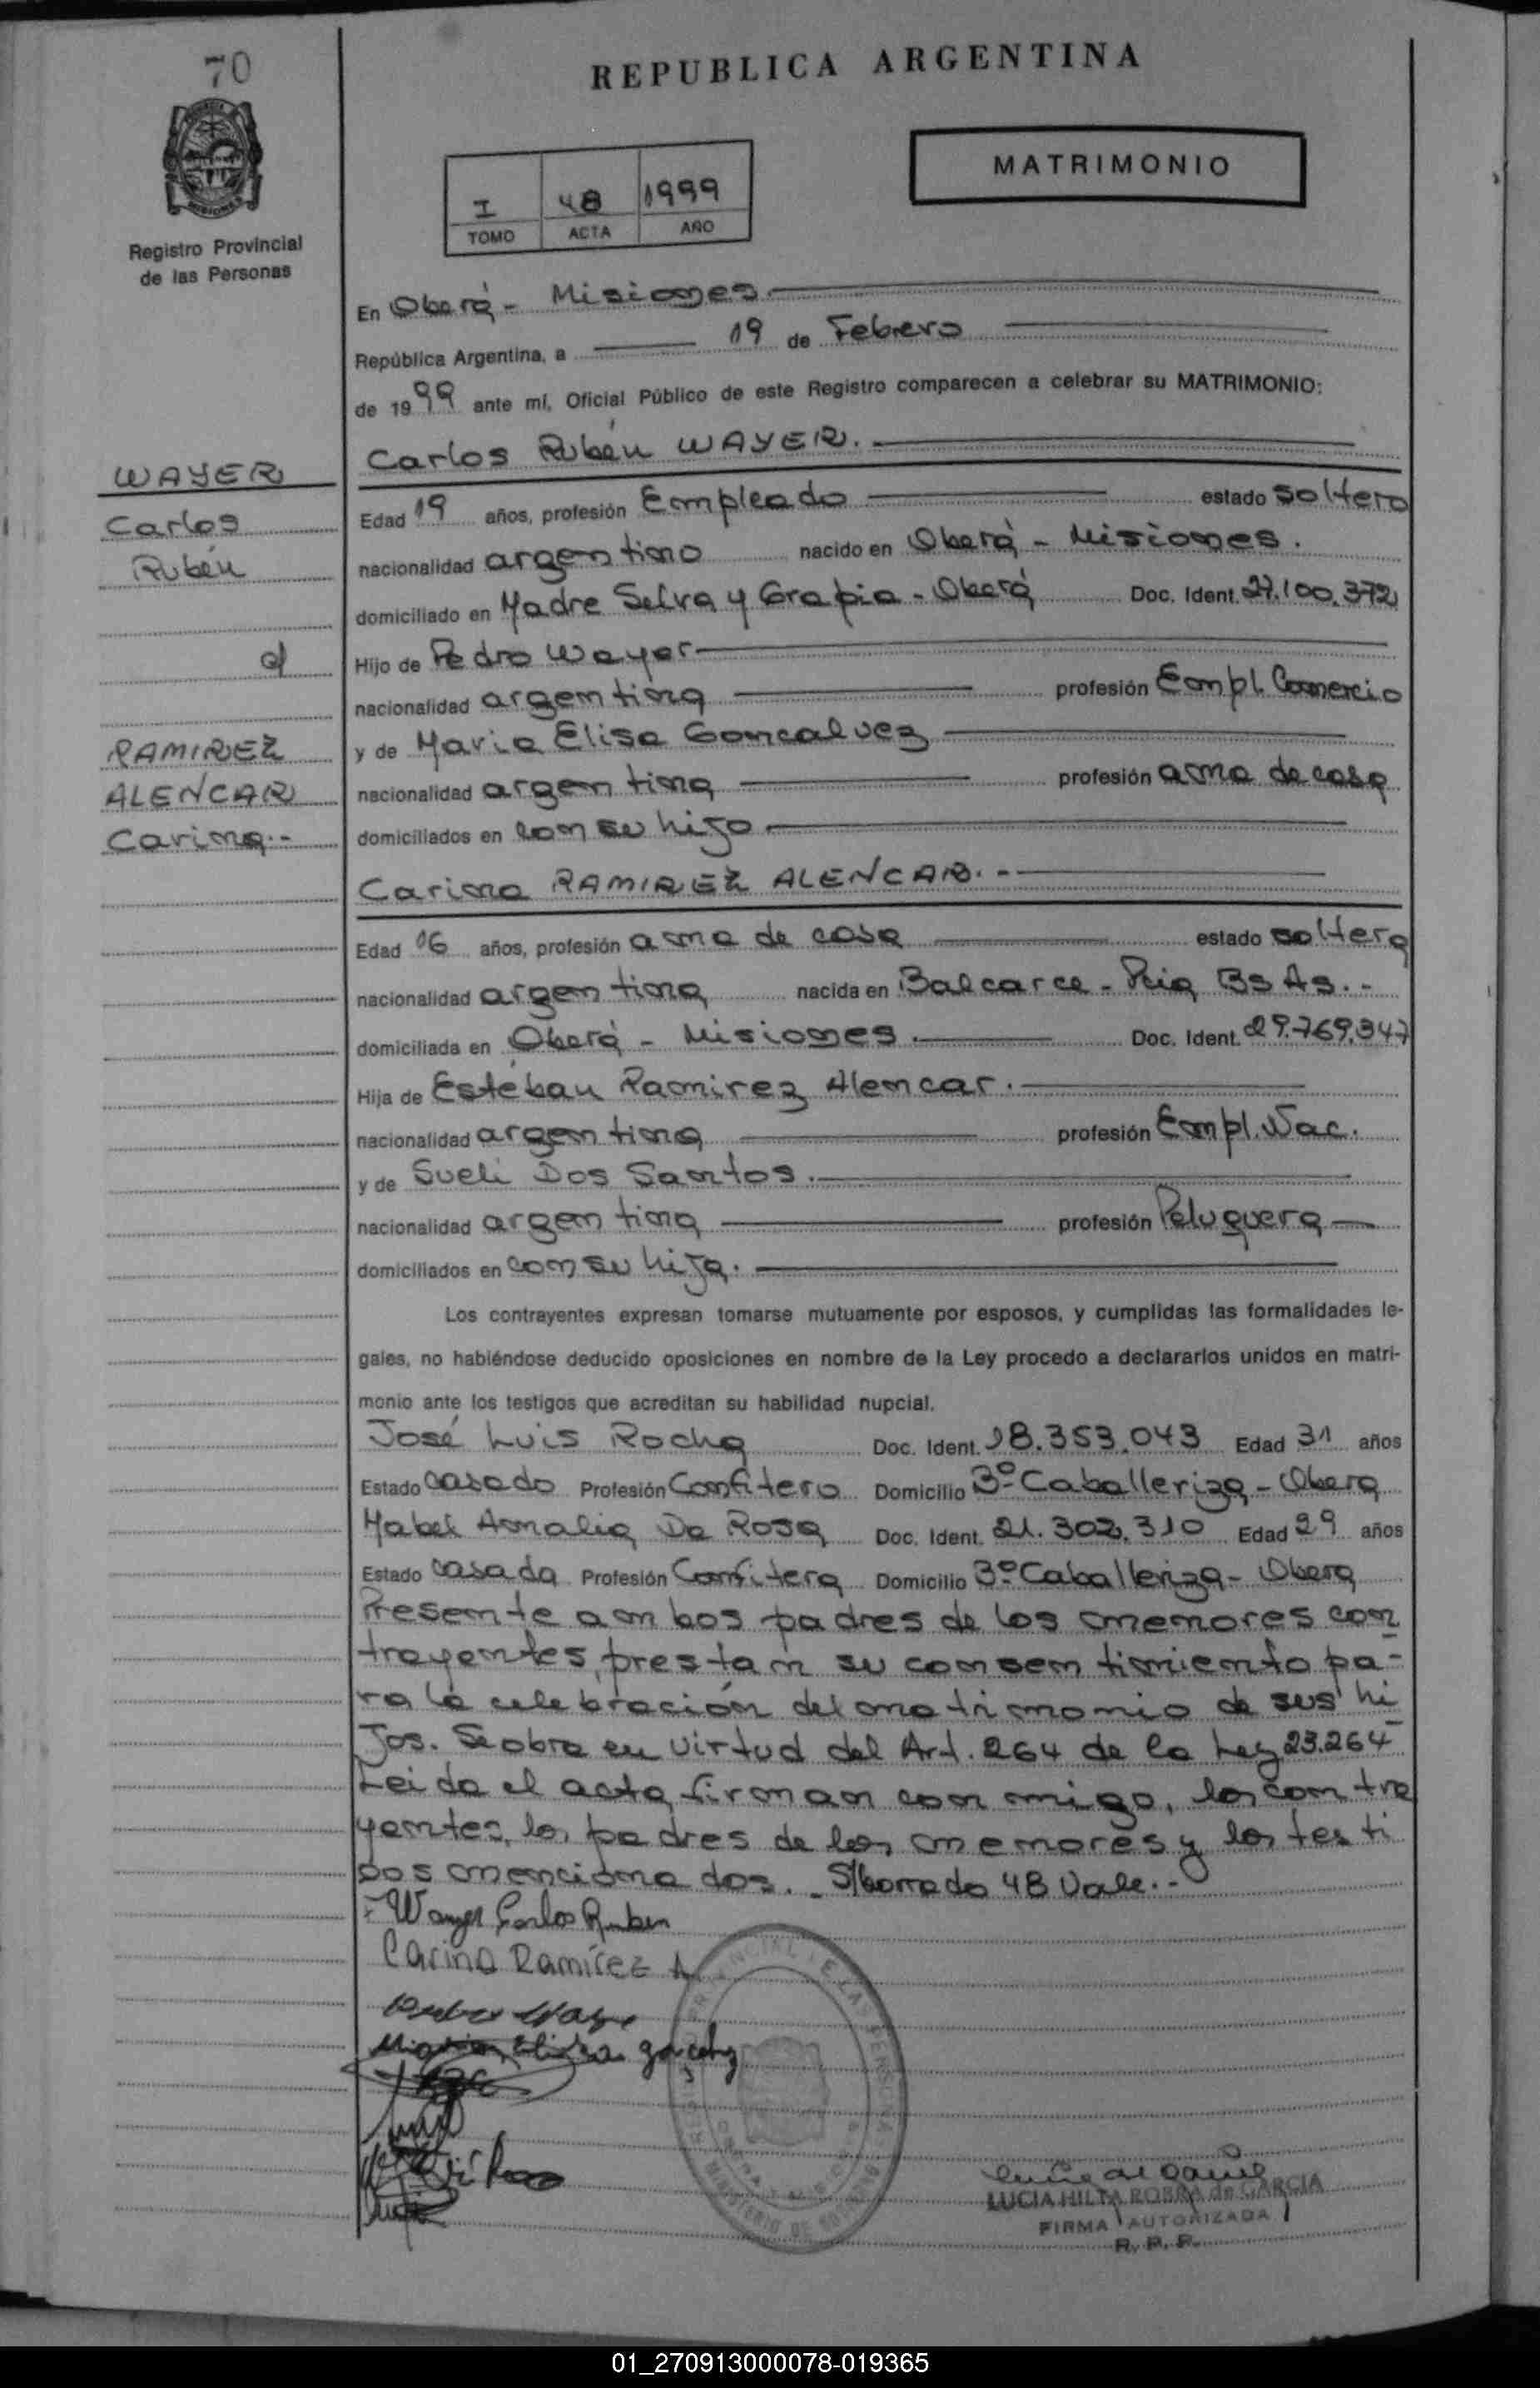 70
REPUBLICA ARGENTINA
MATRIMONIO
I 48 1999
TOMO ACTA AÑO
MISIONES
Registro Provincial
de las Personas
En Oberá - Misiones.
República Argentina, a 19 de Febrero
de 1999 ante mí, Oficial Público de este Registro comparecen a celebrar su MATRIMONIO:
Carlos Rubén WAYER.
WAYER
Carlos
Rubén
Edad 19 años, profesión Empleado estado soltero
nacionalidad argentino nacido en Oberá - Misiones.
domiciliado en Madre Selva y Grapia - Oberá Doc. Ident. 27.100.372
Hijo de Pedro Wayer
nacionalidad argentina profesión Empl. Comercio
y de Maria Elisa Goncalvez
RAMIREZ
ALENCAR
Carina.-
nacionalidad argentina profesión ama de casa
domiciliados en con su hijo
Carina RAMIREZ ALENCAR.-
Edad 16 años, profesión ama de casa estado soltera
nacionalidad argentina nacida en Balcarce - Pcia Bs As.-
domiciliada en Oberá - Misiones. Doc. Ident. 29.769.347
Hija de Estéban Ramirez Alencar.
nacionalidad argentina profesión Empl. Nac.
y de Sueli Dos Santos.
nacionalidad argentina profesión Peluquera
domiciliados en con su hija.
Los contrayentes expresan tomarse mutuamente por esposos, y cumplidas las formalidades le-
gales, no habiéndose deducido oposiciones en nombre de la Ley procedo a declararlos unidos en matri-
monio ante los testigos que acreditan su habilidad nupcial.
José Luis Rocha Doc. Ident. 18.353.043 Edad 31 años
Estado casado Profesión Confitero Domicilio 3º Caballeriza - Obera
Mabel Amalia Da Rosa Doc. Ident. 21.302.310 Edad 29 años
Estado casada Profesión Confitera Domicilio 3º Caballeriza - Obera
Presente ambos padres de los menores con
trayentes, prestan su consentimiento pa-
ra la celebración del matrimonio de sus hi
jos. Se obra en virtud del Art. 264 de la Ley 23.264
Leida el acta, firman con migo, los contra
yentes, los padres de los menores y los testi
gos mencionados. - S/borrado 48 Vale.-
Wayer Carlos Ruben
Carina Ramírez A
LUCIA HILTA ROBRA de GARCIA
FIRMA AUTORIZADA
R. P. P.
01_270913000078-019365